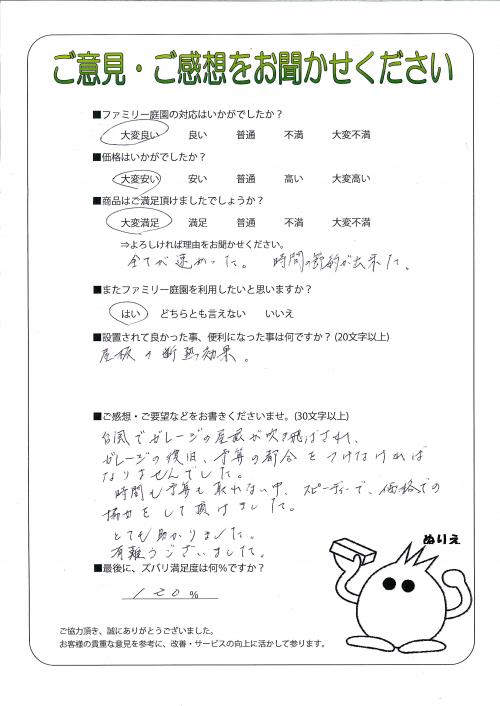 ご意見・ご感想をお聞かせください
■ファミリー庭園の対応はいかがでしたか？
大変良い 良い 普通 不満 大変不満
■価格はいかがでしたか？
大変安い 安い 普通 高い 大変高い
■商品はご満足頂けましたでしょうか？
大変満足 満足 普通 不満 大変不満
⇒よろしければ理由をお聞かせください。
全てが速かった。 時間の節約が出来た。
■またファミリー庭園を利用したいと思いますか？
はい どちらとも言えない いいえ
■設置されて良かった事、便利になった事は何ですか？(20文字以上)
屋根の断熱効果。
■ご感想・ご要望などをお書きくださいませ。(30文字以上)
台風でガレージの屋根が吹き飛ばされ、
ガレージの復旧、予算の都合をつけなければ
なりませんでした。
時間も予算も取れない中、スピーディーで、価格での
協力をして頂けました。
とても助かりました。
有難うございました。
■最後に、ズバリ満足度は何％ですか？
120%
ぬりえ
ご協力頂き、誠にありがとうございました。
お客様の貴重な意見を参考に、改善・サービスの向上に活かして参ります。